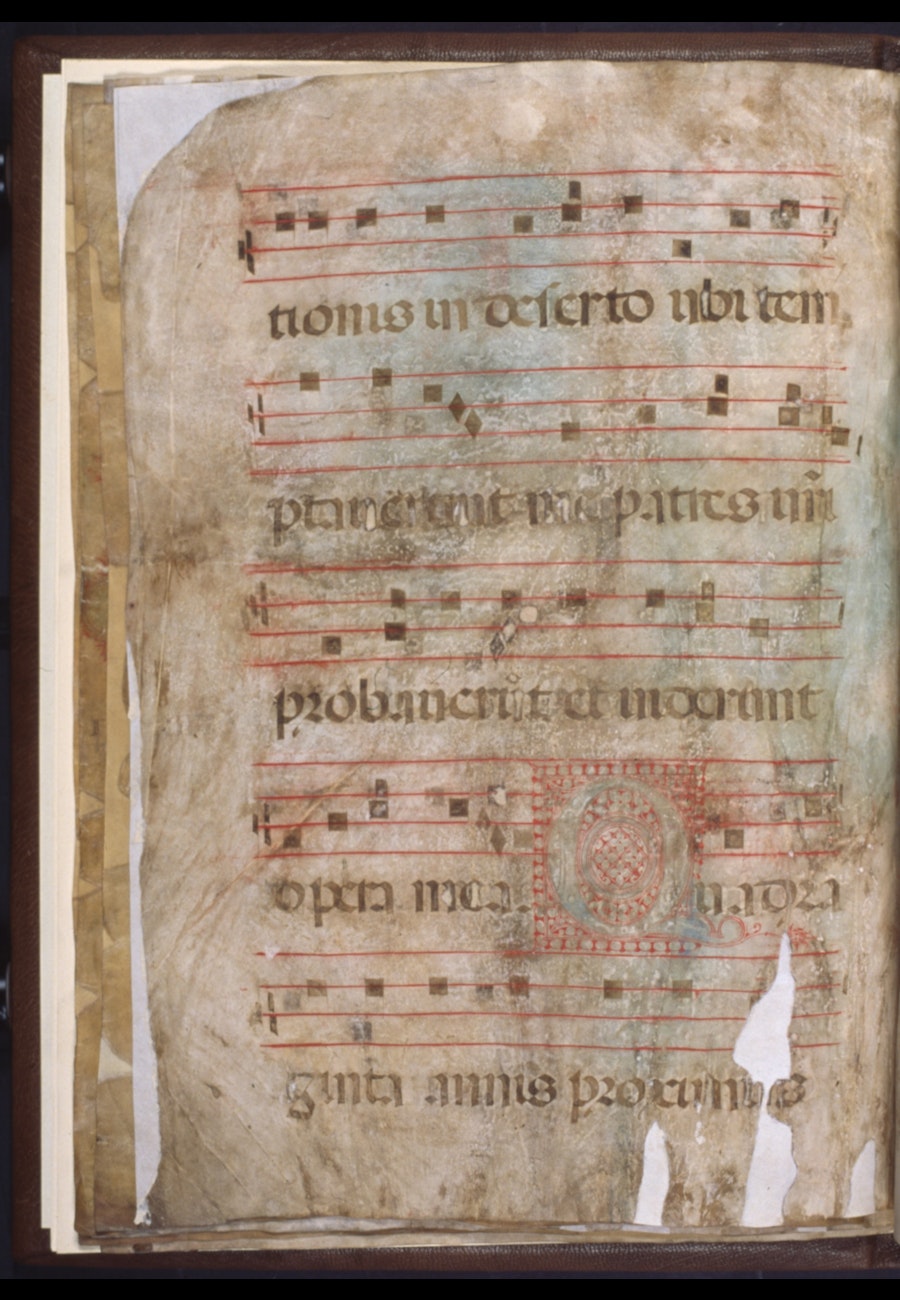 tionis in deserto ubi tem
ptaverunt me patres vr̄i
probaverūt et viderunt
opera mea. Quadra
ginta annis proximus